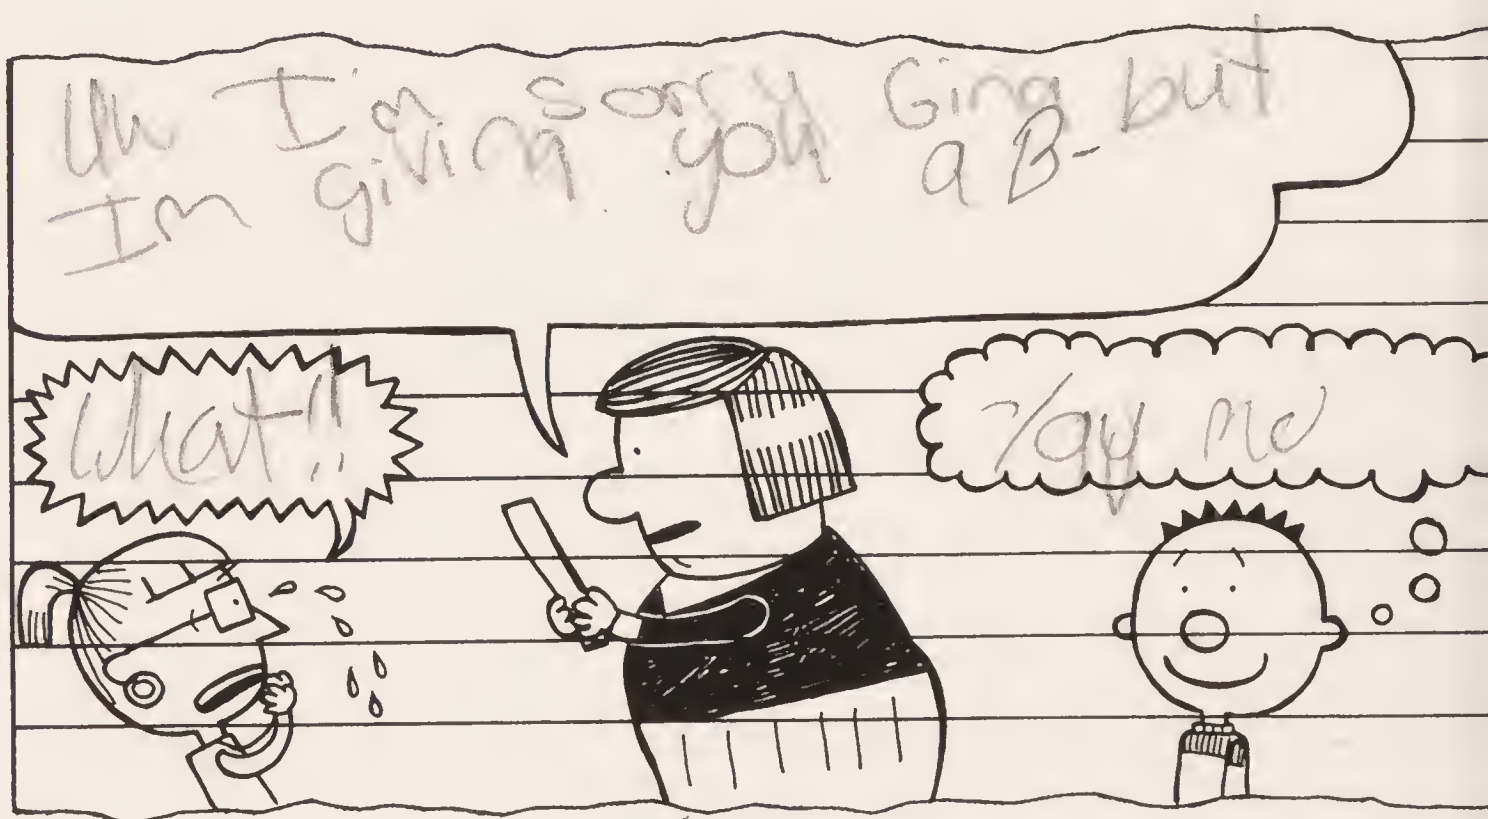 Uh I'm sorry Gina but
Im giving you a B-
What!!
Yay me